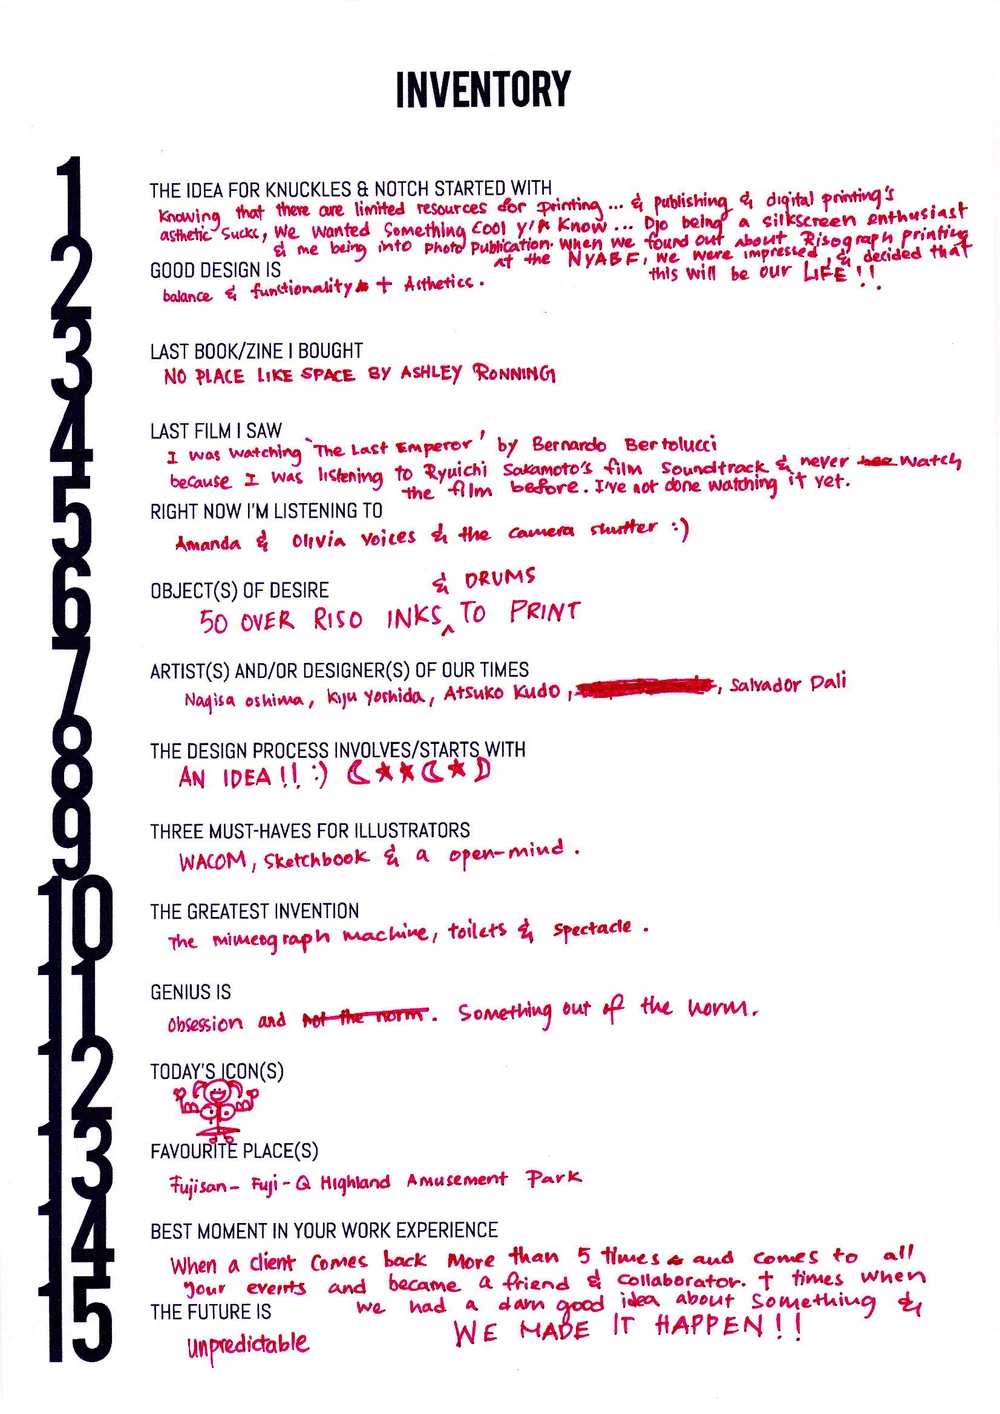 INVENTORY
1
THE IDEA FOR KNUCKLES & NOTCH STARTED WITH
Knowing that there are limited resources for printing... & publishing & digital printing's
asthetic sucks, we wanted something cool y'A know... Djo being a silkscreen enthusiast
& me being into photo publication. When we found out about Risograph printing
at the NYABF, we were impressed, & decided that
this will be our LIFE!!
2
GOOD DESIGN IS
balance & functionality + Asthetics.
3
LAST BOOK/ZINE I BOUGHT
NO PLACE LIKE SPACE BY ASHLEY RONNING
4
LAST FILM I SAW
I was watching 'The Last Emperor' by Bernardo Bertolucci
because I was listening to Ryuichi Sakamoto's film soundtrack & never watch
the film before. I've not done watching it yet.
5
RIGHT NOW I'M LISTENING TO
Amanda & Olivia voices & the camera shutter :)
6
OBJECT(S) OF DESIRE
& DRUMS
50 OVER RISO INKS ^ TO PRINT
7
ARTIST(S) AND/OR DESIGNER(S) OF OUR TIMES
Nagisa oshima, kiju yoshida, Atsuko Kudo, , Salvador Dali
8
THE DESIGN PROCESS INVOLVES/STARTS WITH
AN IDEA!! :)
9
THREE MUST-HAVES FOR ILLUSTRATORS
WACOM, Sketchbook & a open-mind.
10
THE GREATEST INVENTION
The mimeograph machine, toilets & spectacle.
11
GENIUS IS
Obsession and not the norm. Something out of the norm.
12
TODAY'S ICON(S)
13
FAVOURITE PLACE(S)
Fujisan - Fuji-Q Highland Amusement Park
14
BEST MOMENT IN YOUR WORK EXPERIENCE
When a client comes back more than 5 times and comes to all
your events and became a friend & collaborator. + times when
we had a damn good idea about something &
WE MADE IT HAPPEN!!
15
THE FUTURE IS
unpredictable